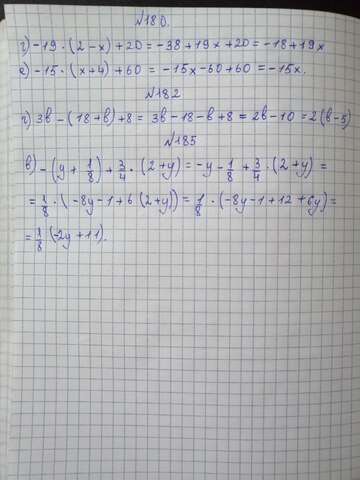 №180.
г) -19 · (2-x) + 20 = -38 + 19x + 20 = -18 + 19x
е) -15 · (x+4) + 60 = -15x - 60 + 60 = -15x.
№182
г) 3в - (18+в) + 8 = 3в - 18 - в + 8 = 2в - 10 = 2(в-5)
№185
в) -(y + 1/8) + 3/4 · (2+y) = -y - 1/8 + 3/4 · (2+y) =
= 1/8 · (-8y - 1 + 6(2+y)) = 1/8 · (-8y - 1 + 12 + 6y) =
= 1/8 (-2y + 11).